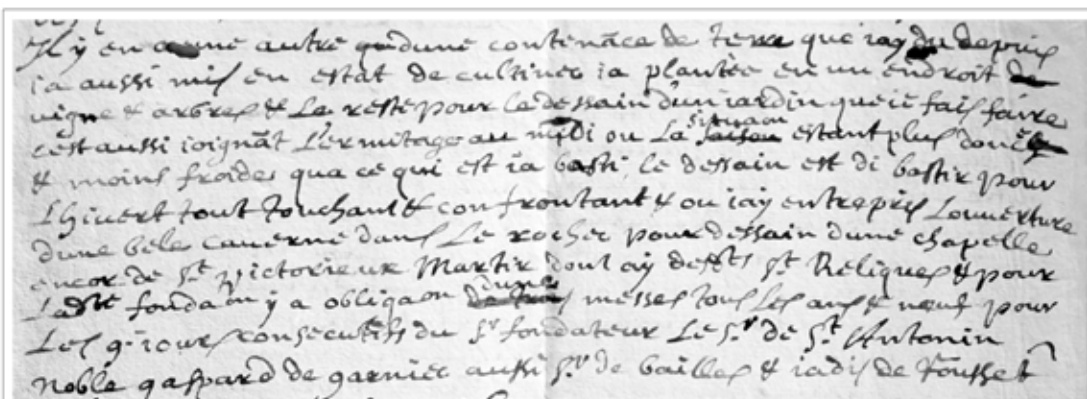 Il y en a une autre qu dune contenãce de terre que iay du depuis
ia aussi mis en estat de cultiuer ia plantée en un endroit de
vigne & arbres & Le reste pour le dessain d'un iardin que ie fais faire
cest aussi ioignãt L'ermitage au midi ou La situaon saison estant plus douce
& moins froide qua ce qui est ia basti, le dessain est di bastir pour
Lhiuert tout touchant & confrontant & ou iay entrepris Louuerture
dune bele cauerne dans Le rocher pour dessain dune chapelle
encor de St Victorieux Martir dont ay des stes Reliques & pour
Ladte fondaon y a obligaon dune messes tous Les ans & neuf pour
Les 9 iours consecutifs du sr fondateur Le sr de St Antonin
noble gaspard de garnier aussi sr de bailles & iadis de fousset